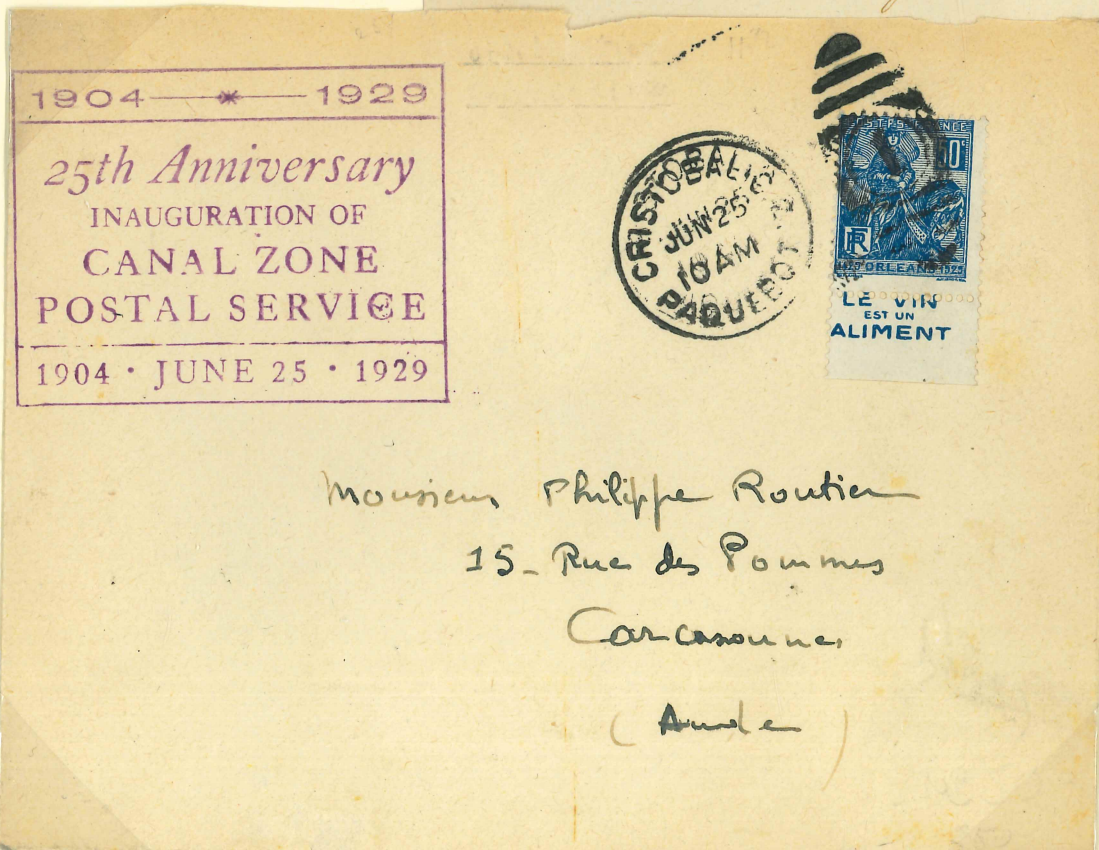 1904 1929
25th Anniversary
INAUGURATION OF
CANAL ZONE
POSTAL SERVICE
1904 · JUNE 25 · 1929
CRISTOBAL C Z
JUN 25
10 AM
PAQUEBOT
POSTES FRANCE
50c
RF
ORLEANS 1929
LE VIN
EST UN
ALIMENT
Monsieur Philippe Routier
15 - Rue des Pommes
Carcassonne
(Aude)